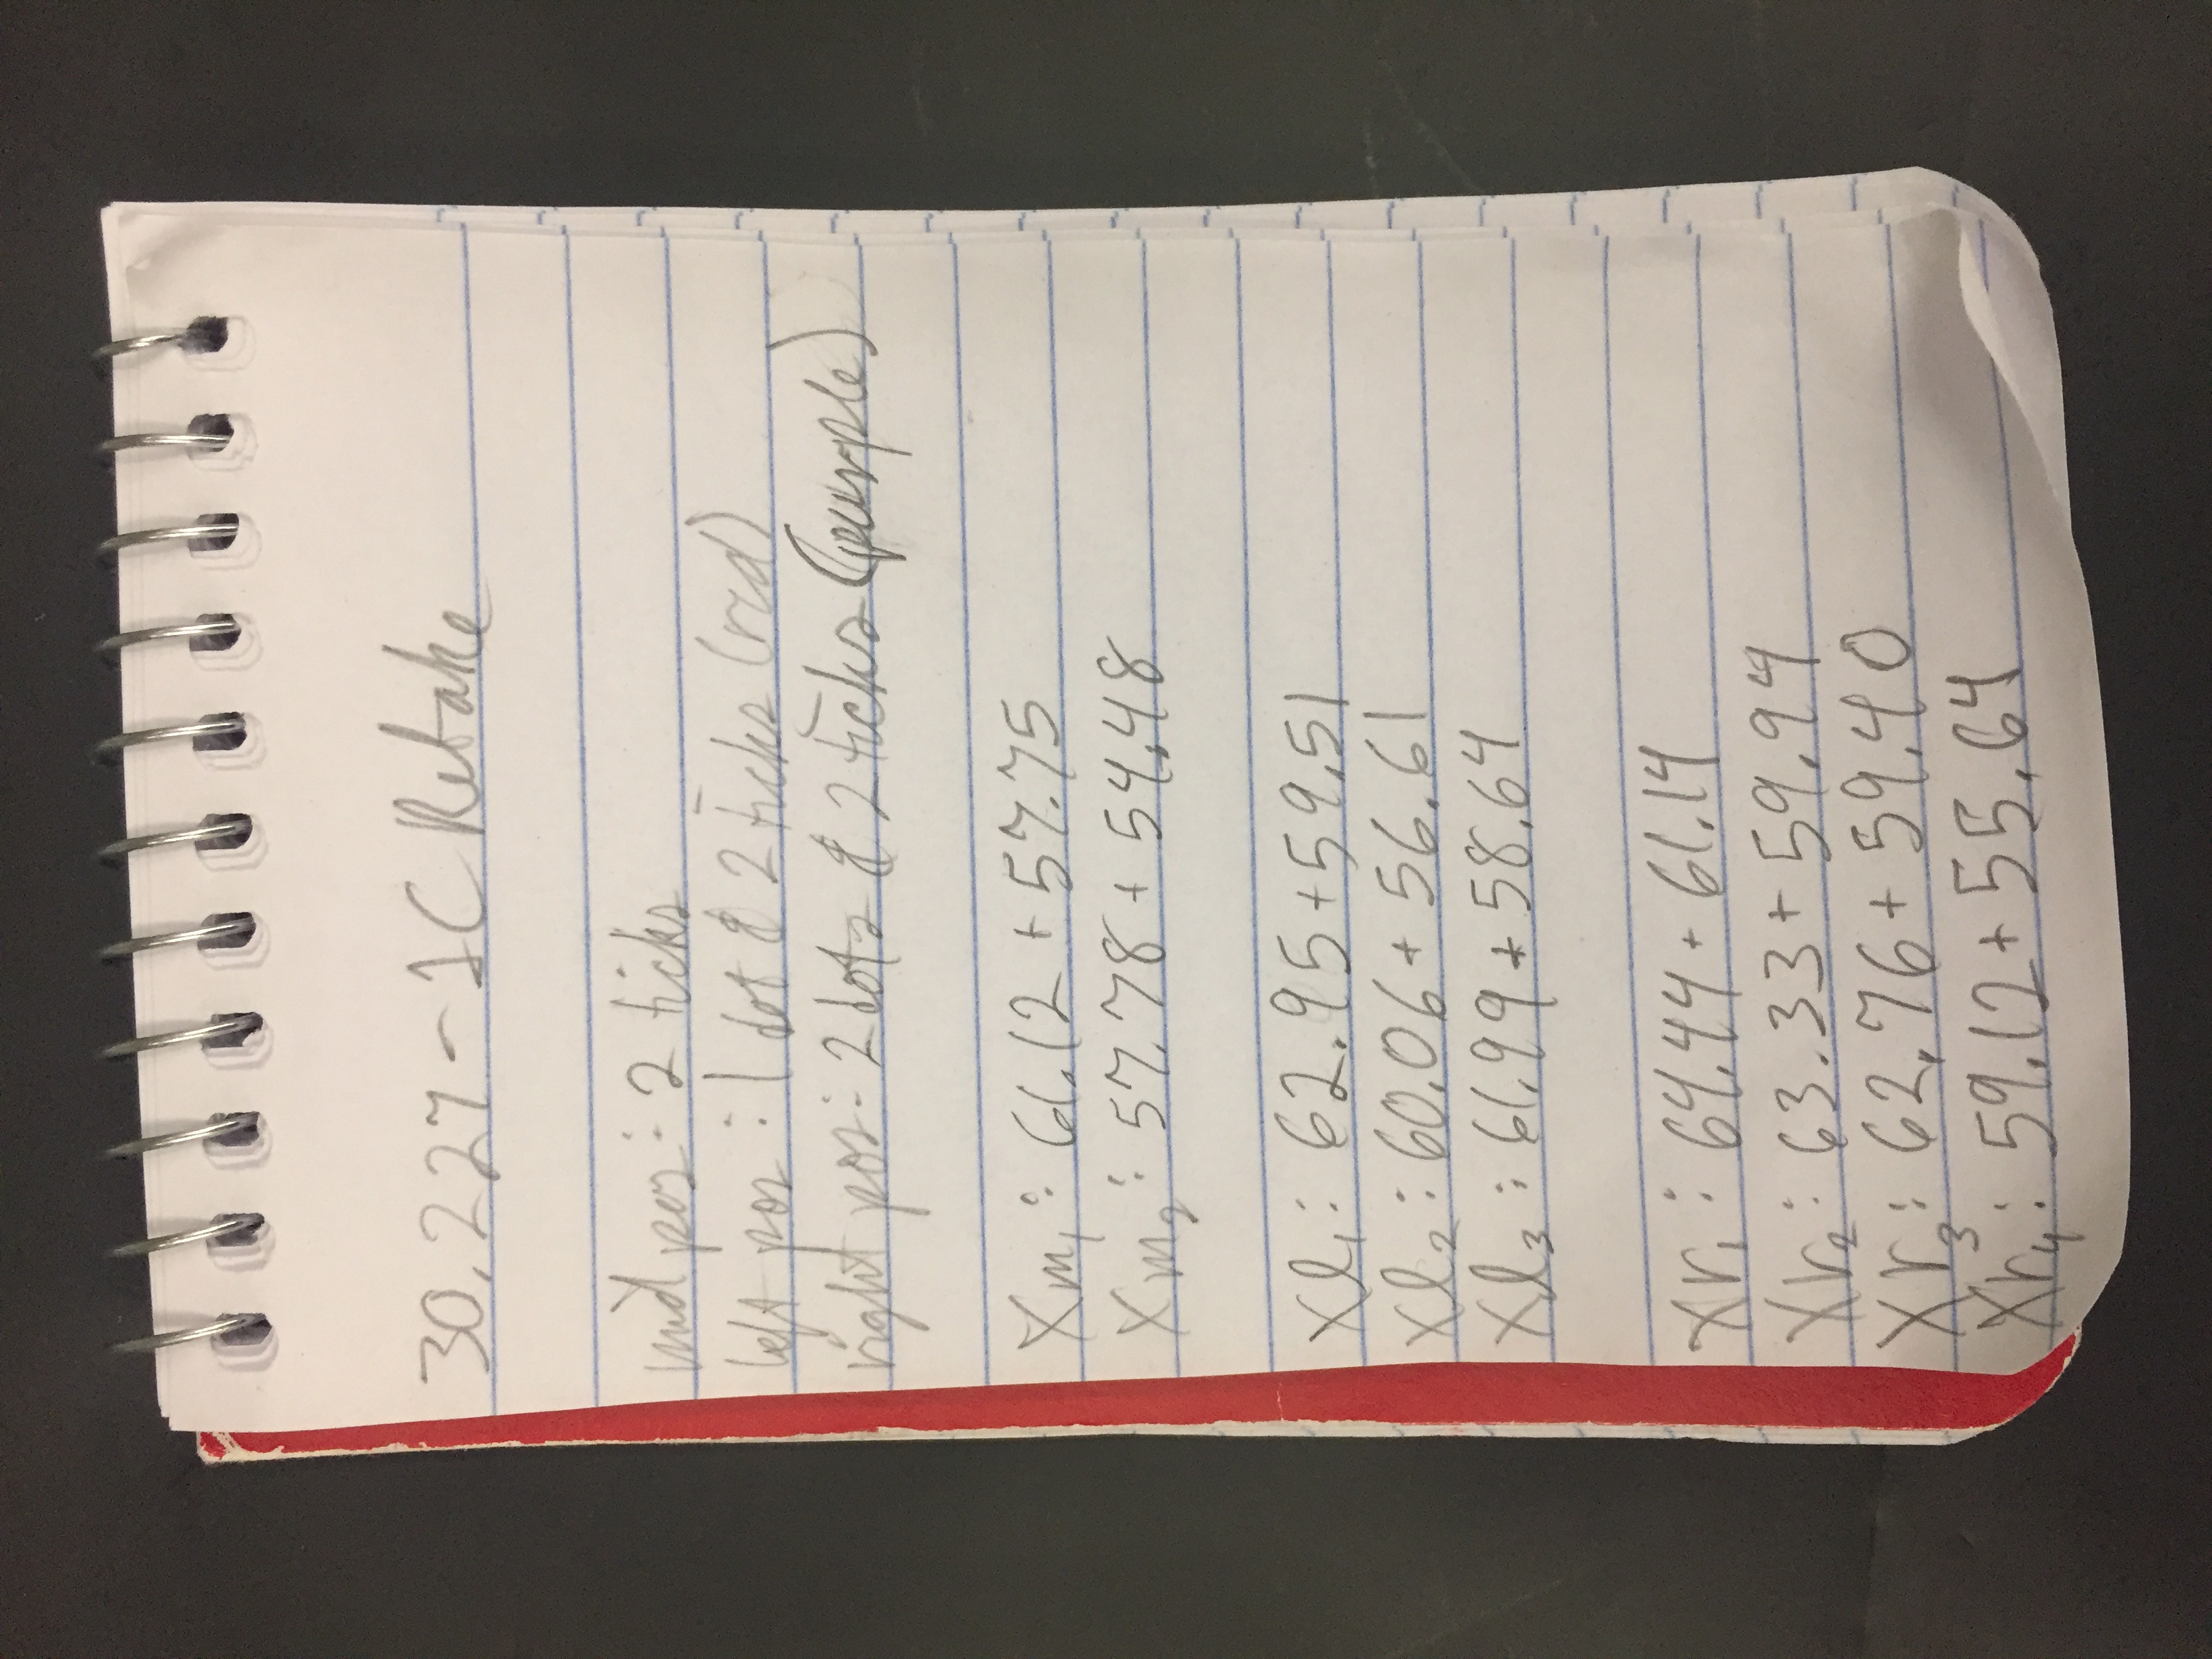 30.227-1C Retake
mid pos: 2 ticks
left pos: 1 dot & 2 ticks (red)
right pos: 2 dots & 2 ticks (purple)
Xm₁: 61.12 + 57.75
Xm₂: 57.78 + 54.48
Xl₁: 62.95 + 59.51
Xl₂: 60.06 + 56.61
Xl₃: 61.99 + 58.64
Xr₁: 64.44 + 61.14
Xr₂: 63.33 + 59.94
Xr₃: 62.76 + 59.40
Xr₄: 59.12 + 55.64